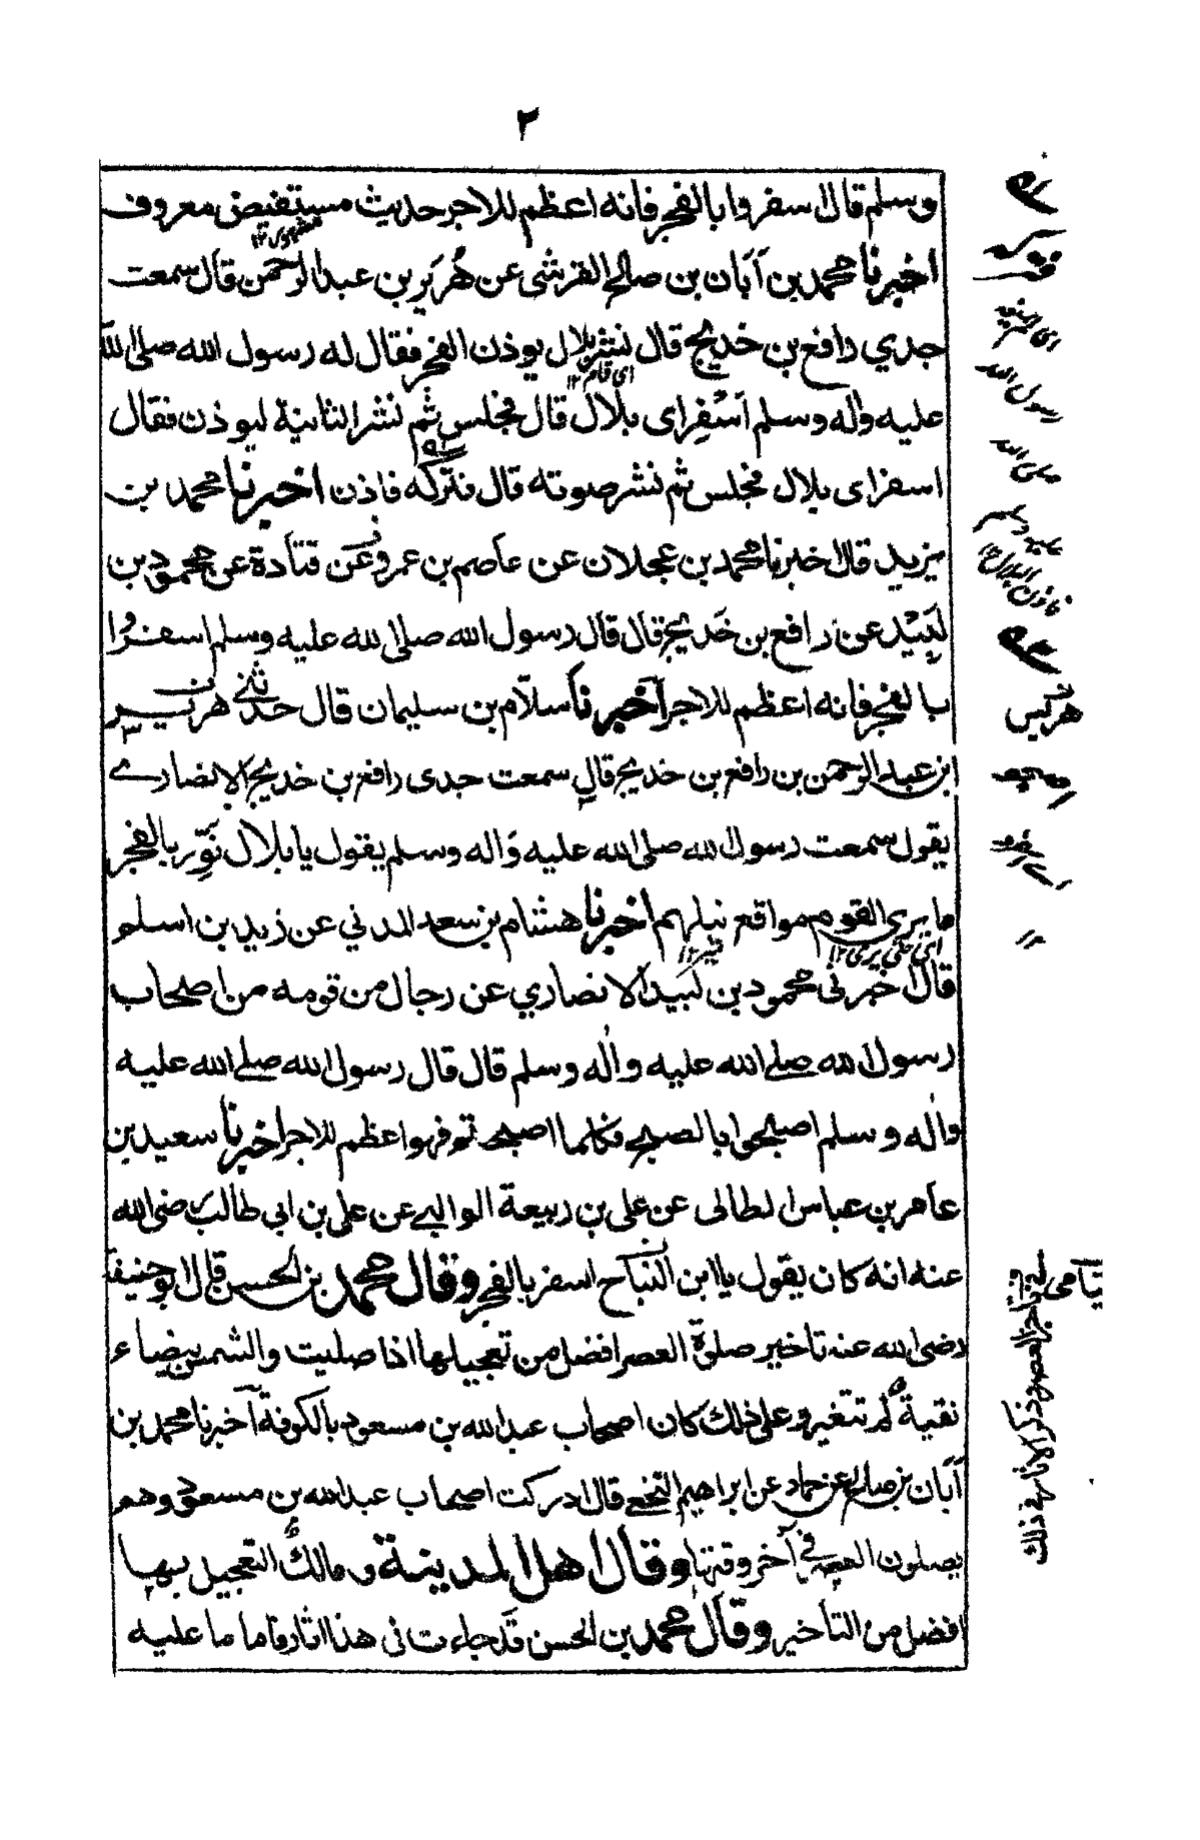 ٢
وسلم قال اسفروا بالفجر فانه اعظم للاجر حديث مستفيض معروف
مشهور ١٢
اخبرنا محمد بن اَبَان بن صالح القرشي عن هُرَير بن عبد الرحمن قال سمعت
جدي رافع بن خديج قال نشر بلال يوذن الفجر فقال له رسول الله صلى الله
اى قام ١٢
عليه واله وسلم اَسْفِر اى بلال قال فجلس ثم نشر الثانية ليوذن فقال
اسفر اى بلال فجلس ثم نشر صوته قال فتركه فاذن اخبرنا محمد بن
يزيد قال اخبرنا محمد بن عجلان عن عاصم بن عمرو عن قتادة عن محمود بن
لَبِيْد عن رافع بن خَديج قال قال رسول الله صلى الله عليه وسلم اسفروا
بالفجر فانه اعظم للاجر اخبرنا سلام بن سليمان قال حدثني هرير
ابن عبد الرحمن بن رافع بن خديج قال سمعت جدى رافع بن خديج الانصارے
يقول سمعت رسول الله صلى الله عليه واله وسلم يقول يا بلال نَوِّر بالفجر
ما يرى القوم مواقع نبلهم اخبرنا هشام بن سعد المدني عن زيد بن اسلم
اى حتى يرى ١٢
قال اخبرنى محمود بن لبيد الانصاري عن رجال من قومه من اصحاب
رسول الله صلے الله عليه واله وسلم قال قال رسول الله صلے الله عليه
واله وسلم اصبحوا بالصبح فكلما اصبحتموفهو اعظم للاجر اخبرنا سعيد بن
عامر بن عباس الطالى عن على بن ربيعة الوالبے عن على بن ابي طالب رضى الله
عنه انه كان يقول يا ابن النباح اسفر بالفجر وقال محمد بن الحسن قال ابو حنيفة
رضى الله عنه تاخير صلوة العصر افضل من تعجيلها اذا صليت والشمس بيضاء
نقية لم تتغير وعلى ذلك كان اصحاب عبد الله بن مسعود بالكوفة اخبرنا محمد بن
اَبَان بن صالح عن حماد عن ابراهيم النخعے قال ادركت اصحاب عبد الله بن مسعود وهم
يصلون العصر في آخر وقتها وقال اهل المدينة ومالك التعجيل بها
افضل من التاخير وقال محمد بن الحسن قد جاءت فى هذا اثار فاما ما عليه
فتركه
رسول الله
صلى الله
هرير
تاخير العصر وذكر الاثار فى ذلك